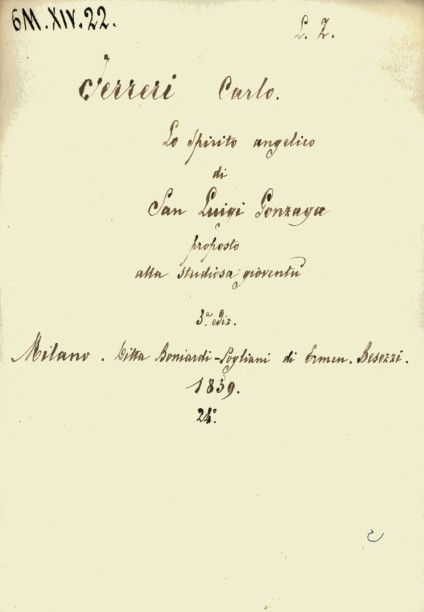 6M.XIV.22.
L. Z.
Ferreri Carlo.
Lo Spirito angelico
di
San Luigi Gonzaga
proposto
alla studiosa gioventù
3.ª ediz.
Milano. Ditta Boniardi-Pogliani di Ermen. Besozzi.
1859.
24°.